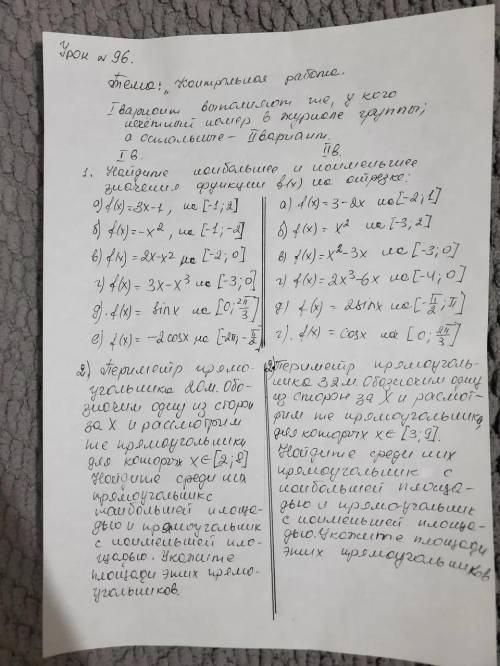 Урок № 96.
Тема: „Контрольная работа.
I вариант выполняют те, у кого
нечётный номер в журнале группы;
а остальные – II вариант.
I в. II в.
1. Найдите наибольшее и наименьшее
значения функции f(x) на отрезке:
а) f(x)=3x-1, на [-1;2]
б) f(x)=-x², на [-1;-2]
в) f(x)=2x-x² на [-2;0]
г) f(x)=3x-x³ на [-3;0]
д). f(x)= sinx на [0; 2π/3]
е) f(x)=-2cosx на [-2π;-π/2]
2) Периметр прямо-
угольника 20м. Обо-
значим одну из сторон
за X и рассмотрим
те прямоугольники,
для которых x∈[2;8]
Найдите среди них
прямоугольник с
наибольшей площа-
дью и прямоугольник
с наименьшей пло-
щадью. Укажите
площади этих прямо-
угольников.
а) f(x)=3-2x на [-2;1]
б) f(x)= x² на [-3;2]
в) f(x)= x²-3x на [-3;0]
г) f(x)= 2x³-6x на [-4;0]
д) f(x)= 2sinx на [-π/2;π]
г). f(x)= cosx на [0; 2π/3]
2) Периметр прямоуголь-
ника 32м. Обозначим одну
из сторон за X и расмот-
рим те прямоугольники,
для которых x∈[3;9].
Найдите среди них
прямоугольник с
наибольшей площа-
дью и прямоугольник
с наименьшей площа-
дью. Укажите площади
этих прямоугольников